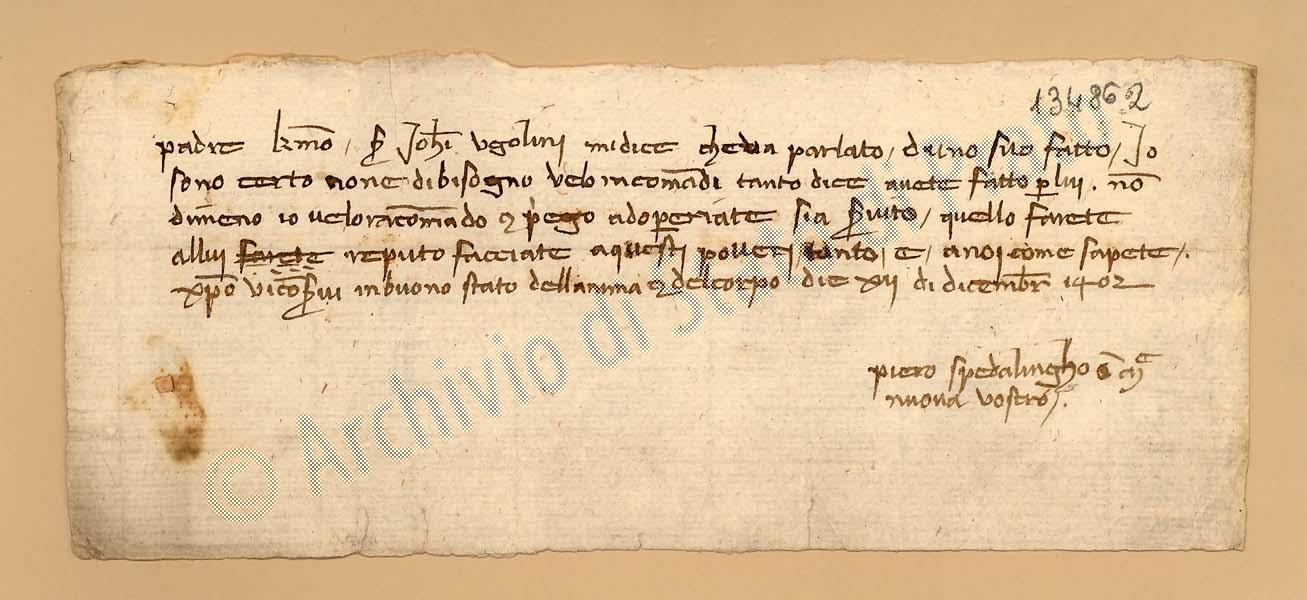 134862
padre kr̄mo / s̄ Joh̄i vgolini midice cheua parlato / duno suo fatto / Io
sono certo none dibisogno velo racomādi tanto dice auete fatto p̄ lui . nō
dimeno io ueloracomādo ⁊ priego adop̄eriate sia s̄uito / quello farete
allui farete reputo facciate aquesti poueri tanto / e / anoi come sapete /.
xp̄o vi cōs̄ui inbuono stato dellanima ⁊ delcorpo die xii di dicembr̄ 1402
piero spedalingho
nuoua vostro /.
© Archivio di Stato